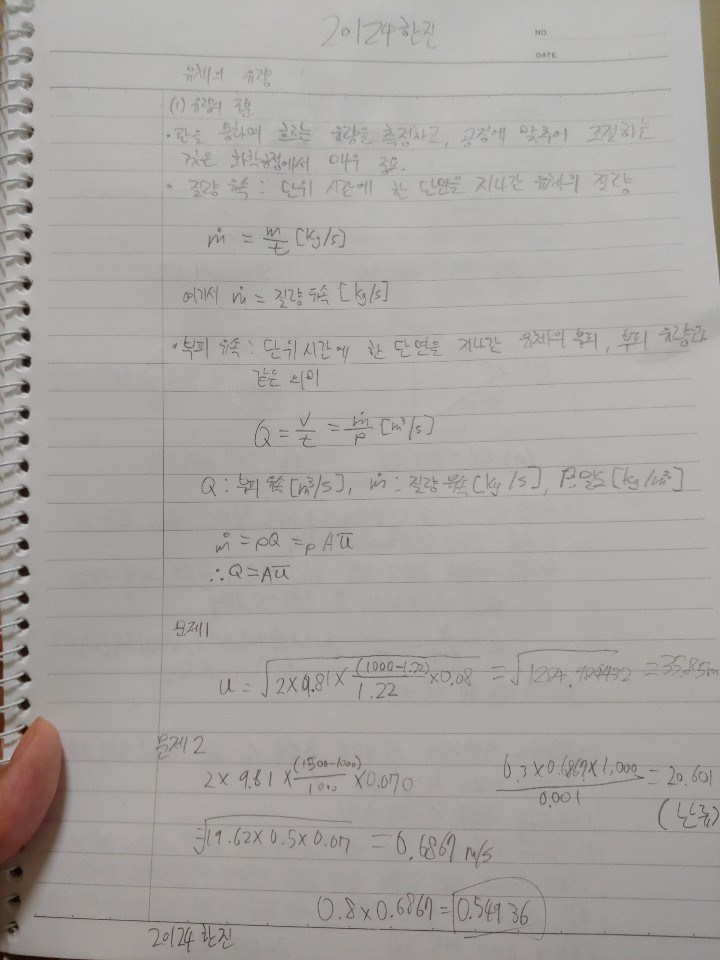 20124 한진
NO.
DATE.
유체의 유량
(1) 유량의 측정
• 관을 통하여 흐르는 유량을 측정하고, 공정에 맞추어 조절하는
것은 화학공정에서 매우 중요.
• 질량 유속 : 단위 시간에 한 단면을 지나간 유체의 질량
ṁ = m/t [kg/s]
여기서 ṁ = 질량 유속 [kg/s]
• 부피 유속 : 단위 시간에 한 단면을 지나간 유체의 부피, 부피 유량과
같은 의미
Q = V/t = ṁ/ρ [m³/s]
Q : 부피 유속 [m³/s], ṁ : 질량 유속 [kg/s], ρ: 밀도 [kg/m³]
ṁ = ρQ = ρAū
∴ Q = Aū
문제1
u = √(2×9.81×(1000-1.22)/1.22×0.08) = √1284.904432 = 35.85m
문제2
2 × 9.81 × (1500-1000)/1000 × 0.070
0.3×0.6867×1,000/0.001 = 20.601
(난류)
=√(19.62×0.5×0.07) = 0.6867 m/s
0.8×0.6867=0.54936
20124 한진